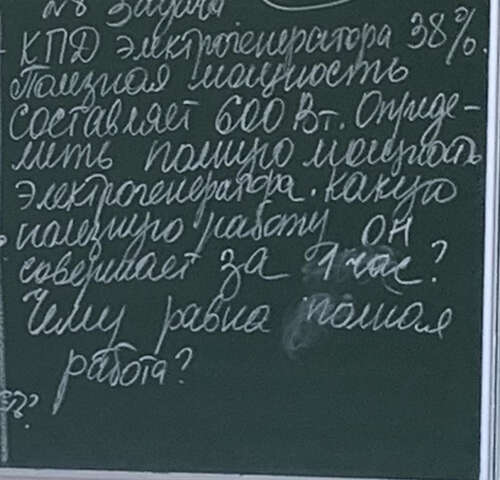 №8 Задача
КПД электрогенератора 38%.
Полезная мощность
составляет 600 Вт. Опреде-
лить полную мощность
электрогенератора. Какую
полезную работу он
совершает за 1 час?
Чему равна полная
работа?